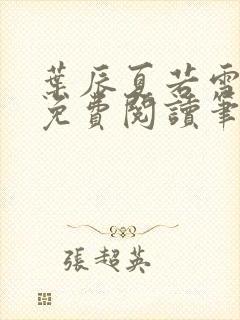 葉辰夏若雪
免費閱讀筆
張超英